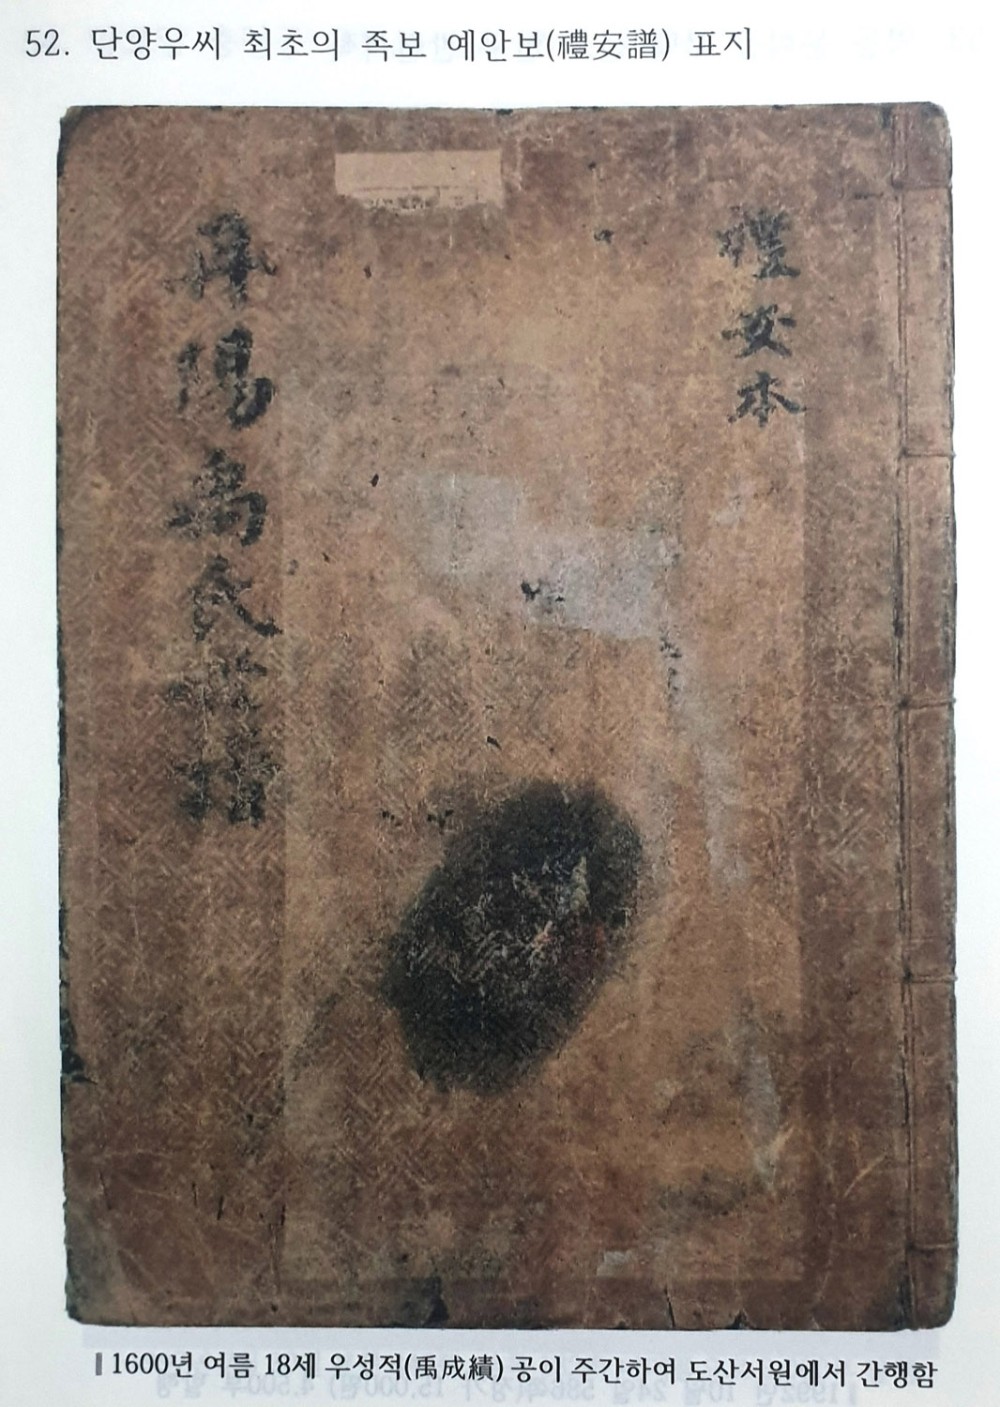 52. 단양우씨 최초의 족보 예안보(禮安譜) 표지
禮安本
丹陽禹氏世譜
1600년 여름 18세 우성적(禹成績) 공이 주간하여 도산서원에서 간행함